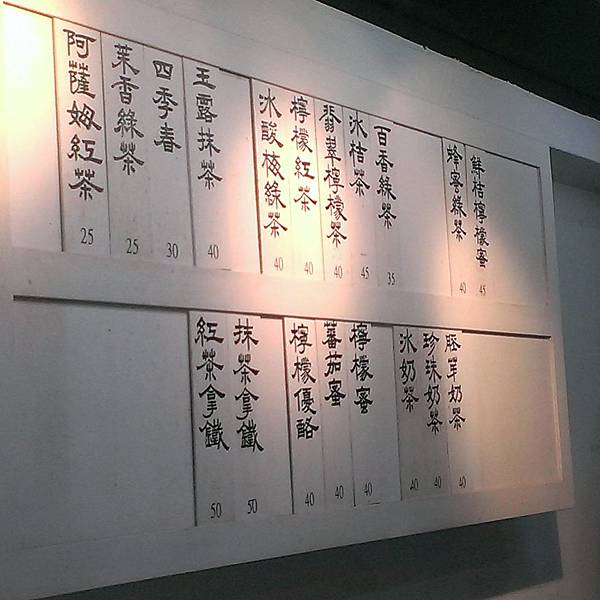 阿薩姆紅茶 25
茉香綠茶 25
四季春 30
玉露抹茶 40
冰酸梅綠茶 40
檸檬紅茶 40
翡翠檸檬茶 40
冰桔茶 45
百香綠茶 35
蜂蜜綠茶 40
鮮桔檸檬蜜 45
紅茶拿鐵 50
抹茶拿鐵 50
檸檬優酪 40
蕃茄蜜 40
檸檬蜜 40
冰奶茶 40
珍珠奶茶 40
胚芽奶茶 40